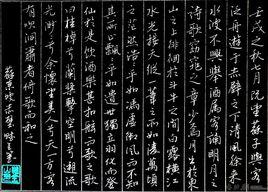 壬戌之秋月既望蘇子與客
泛舟遊於赤壁之下清風徐來
水波不興舉酒屬客誦明月之
詩歌窈窕之章少焉月出於東
山之上徘徊於斗牛之間白露橫江
水光接天縱一葦之所如凌萬頃
之茫然浩浩乎如馮虛御風而不知
其所止飄飄乎如遺世獨立羽化而登
仙於是飲酒樂甚扣舷而歌之歌
曰桂棹兮蘭槳擊空明兮溯流
光渺渺兮予懷望美人兮天一方客
有吹洞簫者倚歌而和之